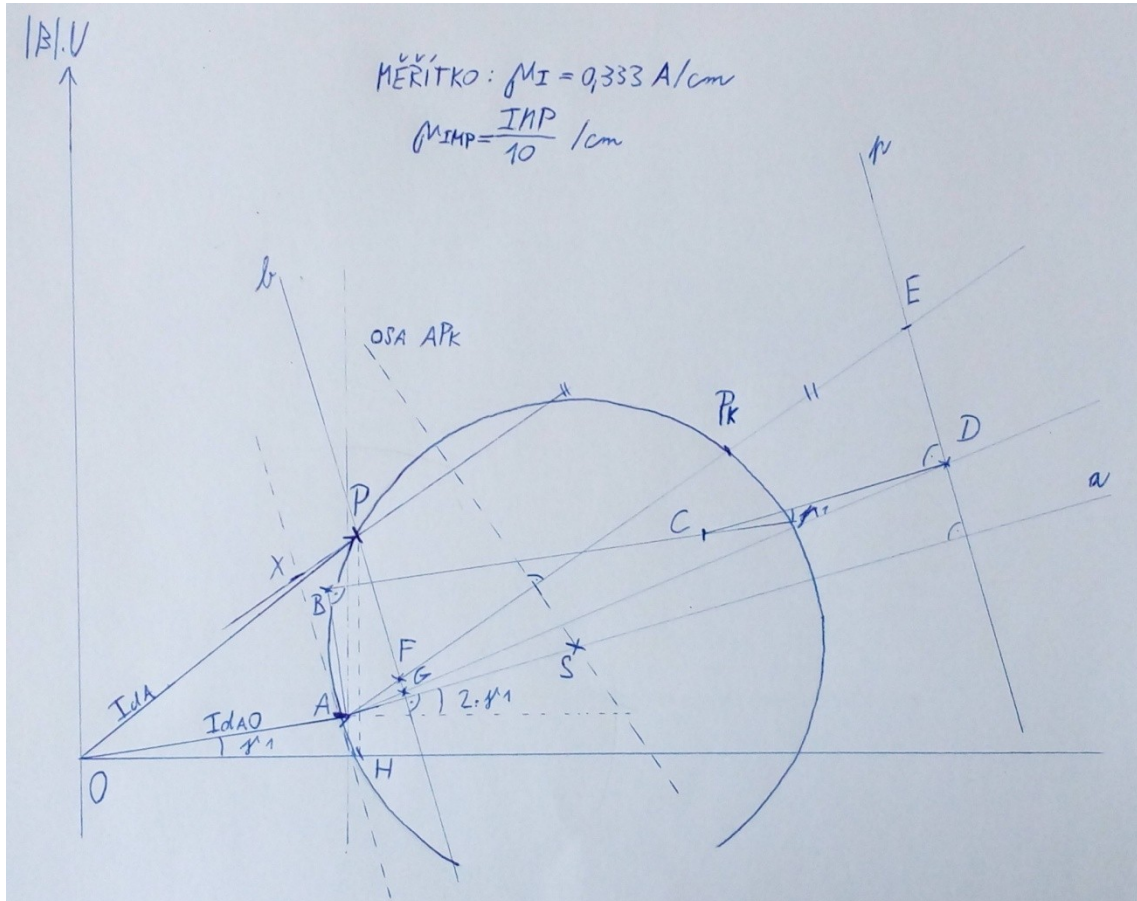 |B|.U
MĚŘÍTKO: μI = 0,333 A/cm
μIMP = IMP/10 /cm
p
b
E
OSA APK
PK
D
a
P
C
γ1
X
B
F
G
S
IdA
A
2.γ1
IdAO
γ1
H
O